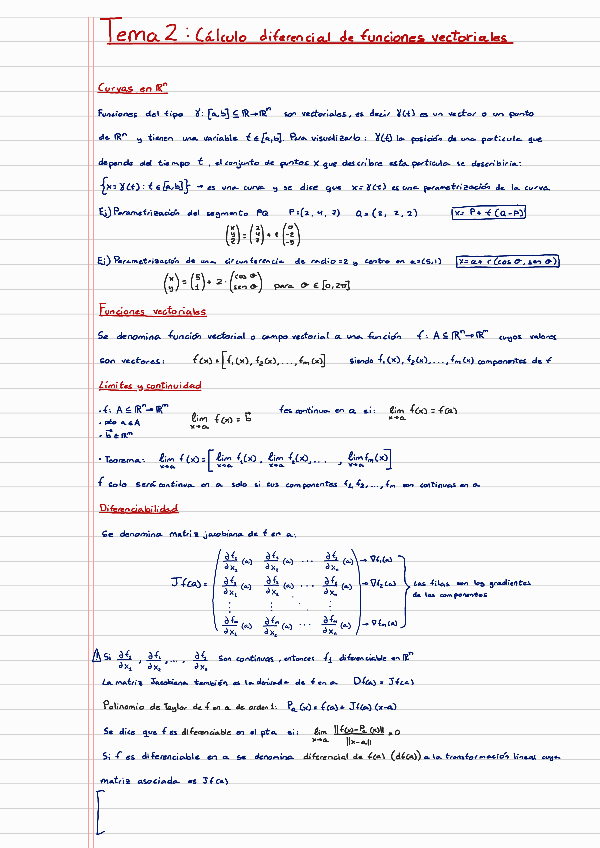 Tema 2: Cálculo diferencial de funciones vectoriales
Curvas en ℝⁿ
Funciones del tipo γ: [a,b] ⊆ ℝ→ℝⁿ son vectoriales, es decir γ(t) es un vector o un punto
de ℝⁿ y tienen una variable t ∈ [a,b]. Para visualizarlo: γ(t) la posición de una particula que
depende del tiempo t, el conjunto de puntos x que describre esta particula se describiria:
{x = γ(t) : t ∈ [a,b]} → es una curva y se dice que x = γ(t) es una parametrización de la curva
Ej) Parametrización del segmento PQ P=(2, 4, 7) Q=(2, 2, 2) x = P + t (Q-P)
Ej) Parametrización de una circunferencia de radio=2 y centro en a=(5,1) x = a + r (cos θ, sen θ)
(x y) = (5 1) + 2 · (cos θ sen θ) para θ ∈ [0, 2π]
Funciones vectoriales
Se denomina función vectorial o campo vectorial a una función f: A ⊆ ℝⁿ → ℝᵐ cuyos valores
son vectores: f(x) = [f₁(x), f₂(x), ..., fₘ(x)] siendo f₁(x), f₂(x), ..., fₘ(x) componentes de f
Límites y continuidad
· f: A ⊆ ℝⁿ → ℝᵐ
· pto a ∈ A
· b⃗ ∈ ℝᵐ
lim x→a f(x) = b⃗ f es continua en a si: lim x→a f(x) = f(a)
· Teorema: lim x→a f(x) = [lim x→a f₁(x), lim x→a f₂(x), ... , lim x→a fₘ(x)]
f solo será continua en a solo si sus componentes f₁, f₂, ..., fₘ son continuas en a
Diferenciabilidad
Se denomina matriz jacobiana de f en a:
Jf(a) = (
∂f₁/∂x₁ (a) ∂f₁/∂x₂ (a) ... ∂f₁/∂xₙ (a) → ∇f₁(a)
∂f₂/∂x₁ (a) ∂f₂/∂x₂ (a) ... ∂f₂/∂xₙ (a) → ∇f₂(a)
⋮ ⋮ ⋱ ⋮
∂fₘ/∂x₁ (a) ∂fₘ/∂x₂ (a) ... ∂fₘ/∂xₙ (a) → ∇fₘ(a)
)
Las filas son los gradientes
de las componentes
Si ∂f₁/∂x₁, ∂f₁/∂x₂, ..., ∂f₁/∂xₙ son continuas, entonces f₁ diferenciable en ℝⁿ
La matriz Jacobiana también es la derivada de f en a Df(a) = Jf(a)
Polinomio de Taylor de f en a de orden 1: Pₐ(x) = f(a) + Jf(a) (x-a)
Se dice que f es diferenciable en el pto a si: lim x→a ||f(x) - Pₐ(x)|| / ||x-a|| = 0
Si f es diferenciable en a se denomina diferencial de f(a) (df(a)) a la transformación lineal cuya
matriz asociada es Jf(a)